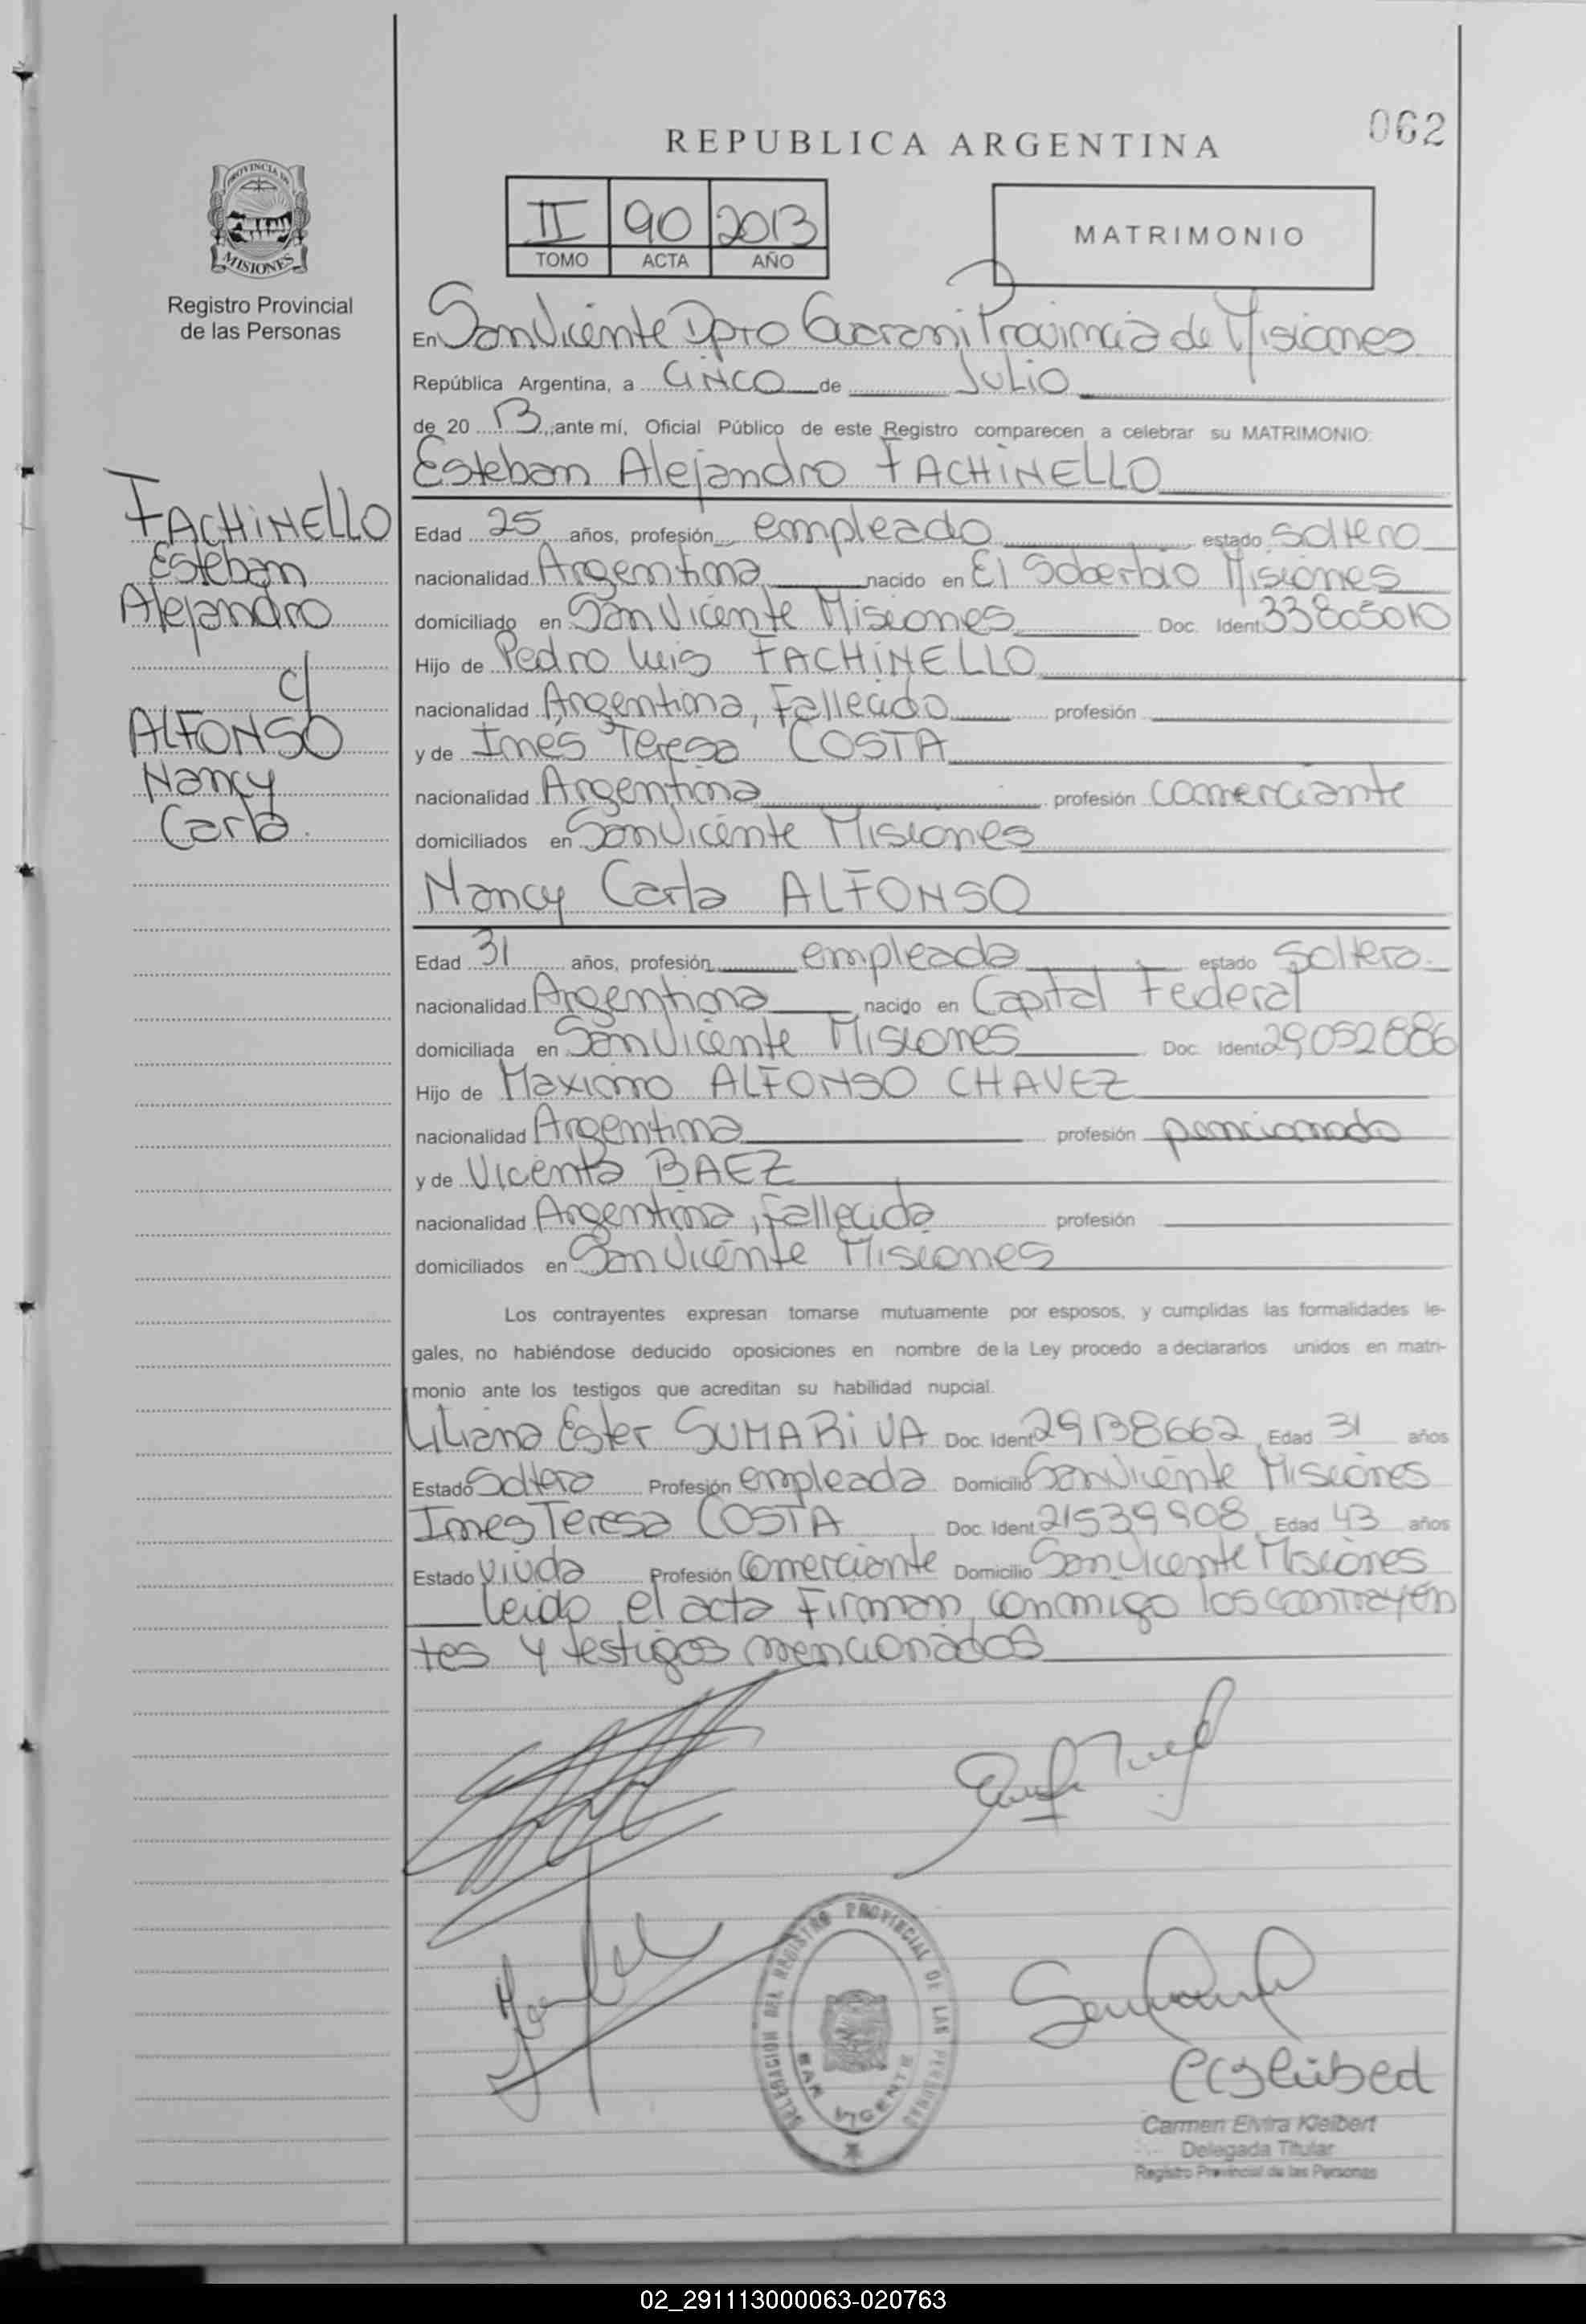 062
REPUBLICA ARGENTINA
PROVINCIA DE
MISIONES
Registro Provincial
de las Personas
II 90 2013
TOMO ACTA AÑO
MATRIMONIO
En San Vicente Dpto Guarani Provincia de Misiones
República Argentina, a CINCO de JULIO
de 20 13, ante mí, Oficial Público de este Registro comparecen a celebrar su MATRIMONIO:
Esteban Alejandro FACHINELLO
FACHINELLO
Esteban
Alejandro
c/
ALFONSO
Nancy
Carla.
Edad 25 años, profesión empleado estado soltero
nacionalidad Argentina nacido en El Soberbio Misiones
domiciliado en San Vicente Misiones Doc. Ident. 33805010
Hijo de Pedro Luis FACHINELLO
nacionalidad Argentina, Fallecido profesión
y de Ines Teresa COSTA
nacionalidad Argentina profesión comerciante
domiciliados en San Vicente Misiones
Nancy Carla ALFONSO
Edad 31 años, profesión empleada estado soltera.
nacionalidad Argentina nacido en Capital Federal
domiciliada en San Vicente Misiones Doc. Ident. 29052886
Hijo de Maximo ALFONSO CHAVEZ
nacionalidad Argentina profesión pencionado
y de Vicenta BAEZ
nacionalidad Argentina, fallecida profesión
domiciliados en San Vicente Misiones
Los contrayentes expresan tomarse mutuamente por esposos, y cumplidas las formalidades le-
gales, no habiéndose deducido oposiciones en nombre de la Ley procedo a declararlos unidos en matri-
monio ante los testigos que acreditan su habilidad nupcial.
Liliana Ester SUMARIVA Doc. Ident. 29138662 Edad 31 años
Estado Soltera Profesión empleada Domicilio San Vicente Misiones
Ines Teresa COSTA Doc. Ident. 21539908 Edad 43 años
Estado viuda Profesión Comerciante Domicilio San Vicente Misiones
Leido el acta Firman conmigo los contrayen
tes y testigos mencionados
DELEGACION DEL REGISTRO PROVINCIAL DE LAS PERSONAS
SAN VICENTE
Carmen Elvira Kleibert
Delegada Titular
Registro Provincial de las Personas
02_291113000063-020763